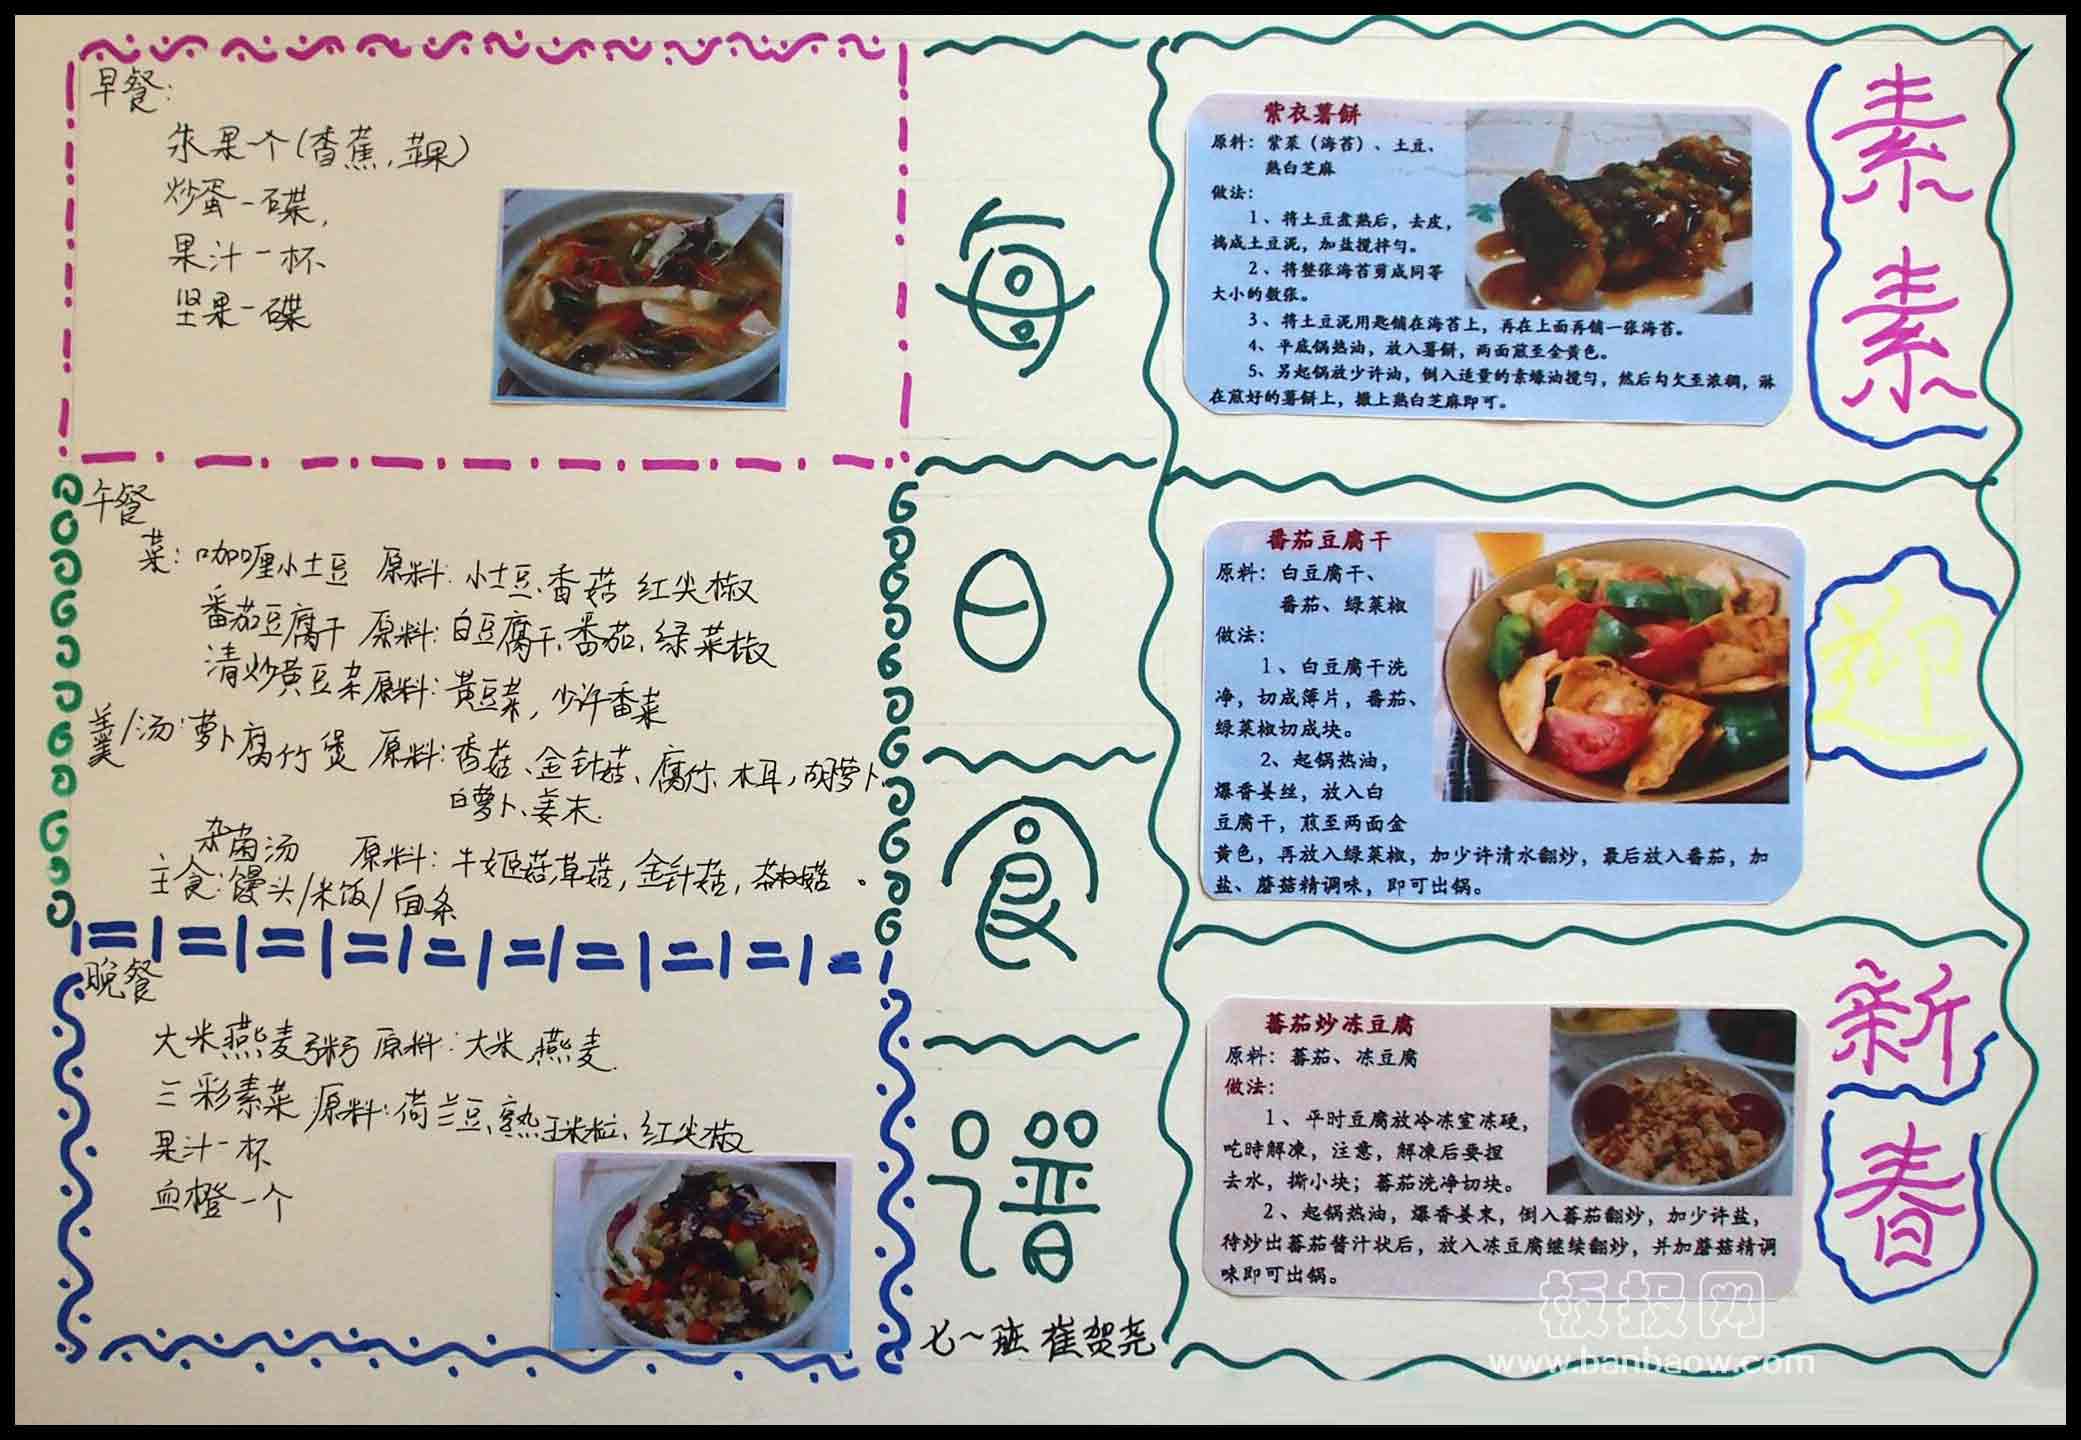 早餐：
水果一个（香蕉，苹果）
炒蛋一碟，
果汁一杯、
坚果一碟
午餐
菜：咖喱小土豆 原料：小土豆、香菇 红尖椒
番茄豆腐干 原料：白豆腐干、番茄、绿菜椒
清炒黄豆菜 原料：黄豆菜，少许香菜
羹/汤：萝卜腐竹煲 原料：香菇、金针菇、腐竹、木耳，胡萝卜
白萝卜、姜末.
杂菌汤 原料：牛姬菇，草菇，金针菇，茶树菇。
主食：馒头/米饭/面条
晚餐
大米燕麦粥 原料：大米，燕麦.
三彩素菜 原料：荷兰豆、熟玉米粒、红尖椒
果汁一杯
血橙一个
每
日
食
谱
七一班 崔贺尧
紫衣薯餅
原料：紫菜（海苔）、土豆、
熟白芝麻
做法：
1、将土豆煮熟后，去皮，
捣成土豆泥，加盐搅拌匀。
2、将整张海苔剪成同等
大小的数张。
3、将土豆泥用匙铺在海苔上，再在上面再铺一张海苔。
4、平底锅热油，放入薯餅，两面煎至金黄色。
5、另起锅放少许油，倒入适量的素蠔油搅匀，然后勾欠至浓稠，淋
在煎好的薯餅上，撒上熟白芝麻即可。
番茄豆腐干
原料：白豆腐干、
番茄、绿菜椒
做法：
1、白豆腐干洗
净，切成薄片，番茄、
绿菜椒切成块。
2、起锅热油，
爆香姜丝，放入白
豆腐干，煎至两面金
黄色，再放入绿菜椒，加少许清水翻炒，最后放入番茄，加
盐、蘑菇精调味，即可出锅。
蕃茄炒冻豆腐
原料：蕃茄、冻豆腐
做法：
1、平时豆腐放冷冻室冻硬，
吃時解凍，注意，解凍后要捏
去水，撕小块；蕃茄洗净切块。
2、起锅热油，爆香姜末，倒入蕃茄翻炒，加少许盐，
待炒出蕃茄酱汁状后，放入冻豆腐继续翻炒，并加蘑菇精调
味即可出锅。
素
素
迎
新
春
板报网
www.banbaow.com